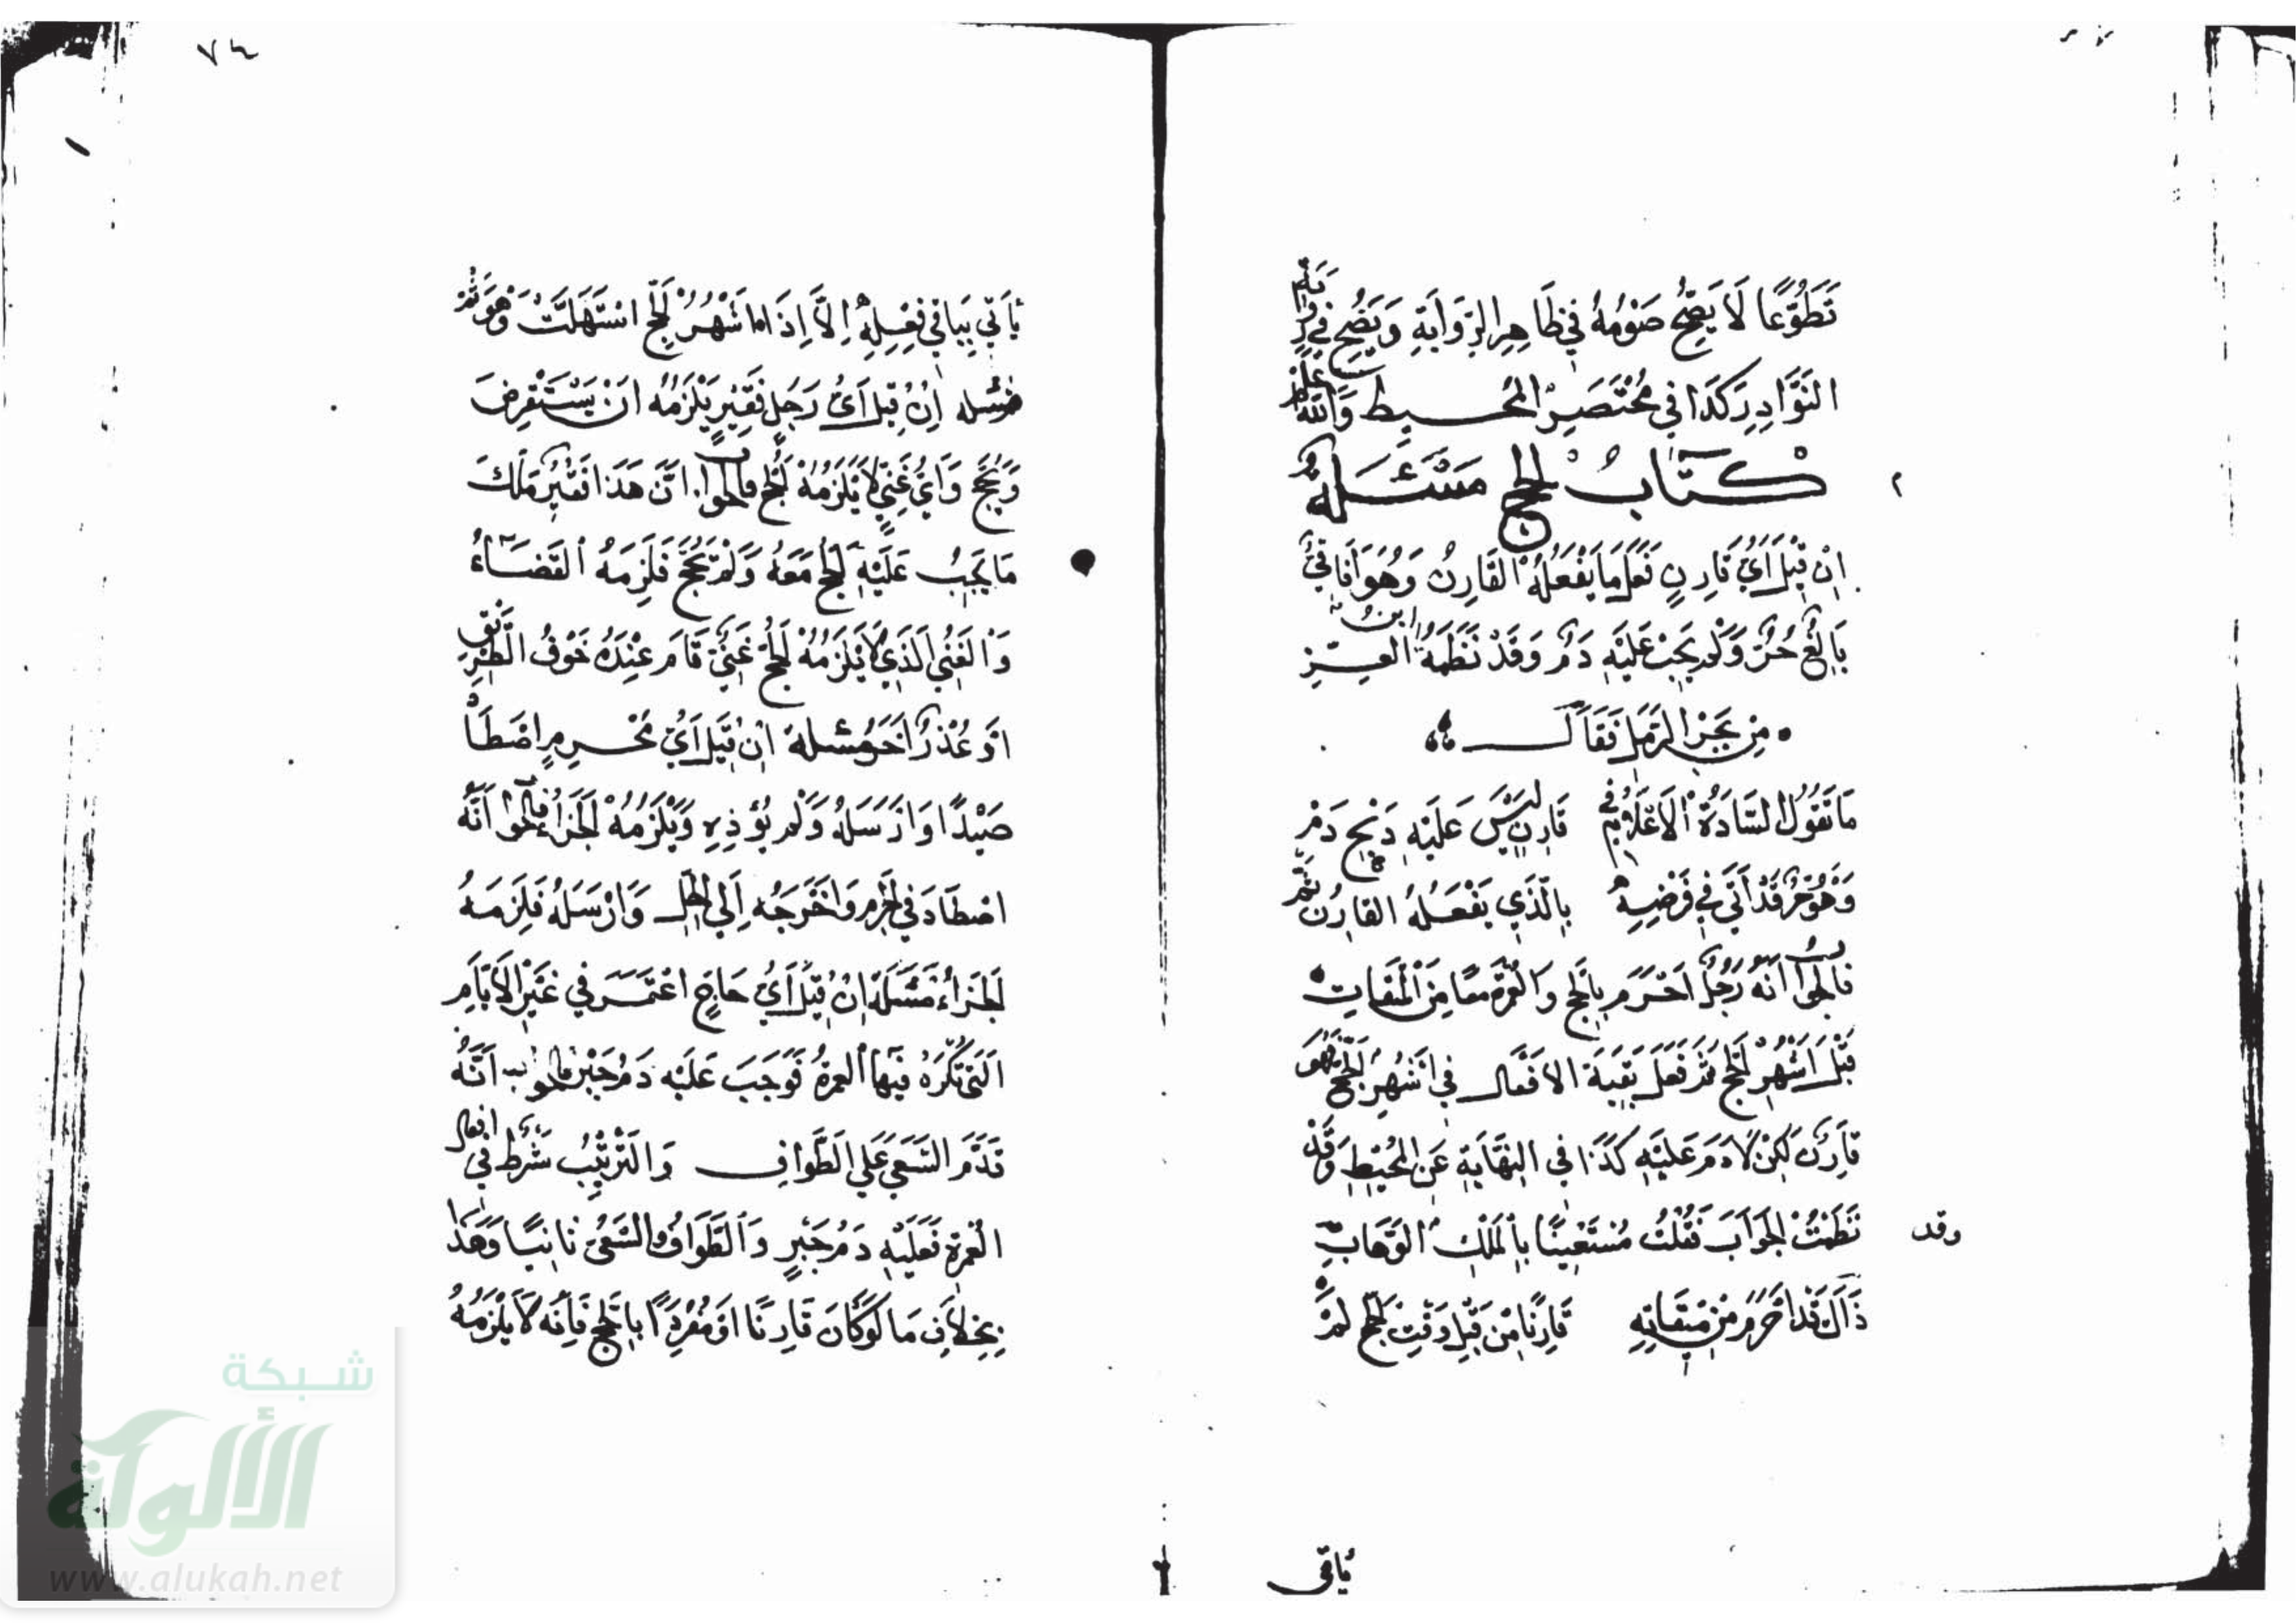 تَطَوُّعًا لَا يَصِحُّ صَوْمُهُ فِي ظَاهِرِ الرِّوَايَةِ وَيَصِحُّ فِي رِوَايَةِ
النَّوَادِرِ كَذَا فِي مُخْتَصَرِ الْمُحِيطِ وَاللَّهُ أَعْلَمُ
كِتَابُ الْحَجِّ مَسْئَلَةٌ
اِنْ قِيْلَ اَيُّ قَارِنٍ فَعَلَ مَا يَفْعَلُهُ الْقَارِنُ وَهُوَ اٰفَاقِيٌّ
بَالِغٌ حُرٌّ وَلَمْ يَجِبْ عَلَيْهِ دَمٌ وَقَدْ نَظَمَهُ ابْنُ الْعِزِّ
مِنْ بَحْرِ الرَّمَلِ فَقَالَ
مَا تَقُولُ السَّادَةُ الْاَعْلَامُ فِي قَارِنٍ لَيْسَ عَلَيْهِ ذَبْحُ دَمْ
وَهُوَ حُرٌّ قَدْ اَتَى فِي فَرْضِهِ بِالَّذِي يَفْعَلُهُ الْقَارِنُ ثَمّ
فَالْجَوَابُ اَنَّهُ رَجُلٌ اَحْرَمَ بِالْحَجِّ وَالْعُمْرَةِ مَعًا مِنَ الْمِيقَاتِ
قَبْلَ اَشْهُرِ الْحَجِّ ثُمَّ فَعَلَ بَقِيَّةَ الْاَفْعَالِ فِي اَشْهُرِ الْحَجِّ فَهُوَ
قَارِنٌ لَكِنْ لَا دَمَ عَلَيْهِ كَذَا فِي النِّهَايَةِ عَنِ الْمُحِيْطِ وَقَدْ
نَظَمْتُ الْجَوَابَ فَقُلْتُ مُسْتَعِيْنًا بِالْمَلِكِ الْوَهَّابِ
وقد
ذَاكَ قَدْ اَحْرَمَ مِنْ مِيْقَاتِهِ قَارِنًا مِنْ قَبْلِ وَقْتِ الْحَجِّ لَمْ
يأتي
٧٤
يَأْتِي بِبَاقِي فِعْلِهِ اِلَّا اِذَا مَا اَشْهُرُ الْحَجِّ اسْتَهَلَّتْ وَهْوَ ثَمّ
مسئله اِنْ قِيْلَ اَيُّ رَجُلٍ فَقِيْرٍ يَلْزَمُهُ اَنْ يَسْتَقْرِضَ
وَيَحُجَّ وَاَيُّ غَنِيٍّ لَا يَلْزَمُهُ الْحَجُّ فَالْجَوَابُ اَنَّ هَذَا فَقِيْرٌ مَلَكَ
مَا يَجِبُ عَلَيْهِ الْحَجُّ مَعَهُ وَلَمْ يَحُجَّ فَلَزِمَهُ الْقَضَاءُ
وَالْغَنِيُّ الَّذِي لَا يَلْزَمُهُ الْحَجُّ غَنِيٌّ قَامَ عِنْدَهُ خَوْفُ الطَّرِيْقِ
اَوْ عُذْرٌ اٰخَرُ مسئلة اِنْ قِيْلَ اَيُّ مُحْرِمٍ اِصْطَادَ
صَيْدًا وَاَرْسَلَهُ وَلَمْ يُؤْذِهِ وَيَلْزَمُهُ الْجَزَاءُ فَالْجَوَابُ اَنَّهُ
اصْطَادَ فِي الْحَرَمِ وَاَخْرَجَهُ اِلَى الْحِلِّ وَاَرْسَلَهُ فَلَزِمَهُ
الْجَزَاءُ مَسْئَلَة اِنْ قِيْلَ اَيُّ حَاجٍّ اعْتَمَرَ فِي غَيْرِ الْاَيَّامِ
الَّتِي تُكْرَهُ فِيْهَا الْعُمْرَةُ فَوَجَبَ عَلَيْهِ دَمُ جَبْرٍ فَالْجَوَابُ اَنَّهُ
قَدَّمَ السَّعْيَ عَلَى الطَّوَافِ وَالتَّرْتِيْبُ شَرْطٌ فِي افعال
الْعُمْرَةِ فَعَلَيْهِ دَمُ جَبْرٍ وَالطَّوَافُ وَالسَّعْيُ ثَانِيًا وَهَذَا
بِخِلَافِ مَا لَوْ كَانَ قَارِنًا اَوْ مُفْرِدًا بِالْحَجِّ فَاِنَّهُ لَا يَلْزَمُهُ
شبكة
الألوكة
www.alukah.net